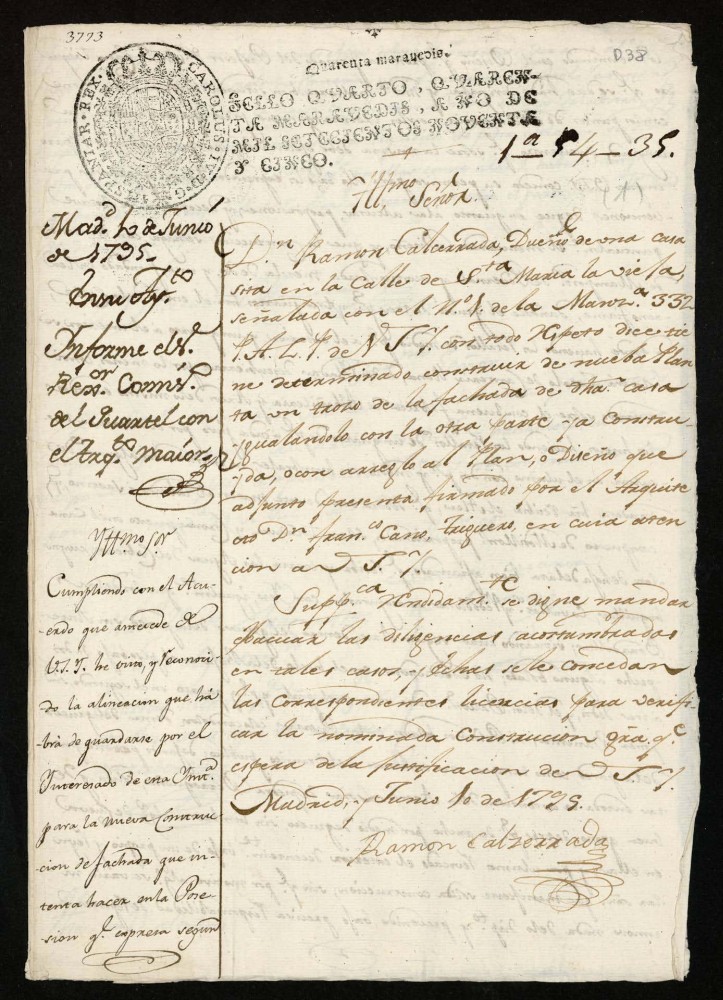 3773
D38
CAROLUS IV D. G. HISPANIAR. REX.
Quarenta maravedis.
SELLO QVARTO, QVAREN-
TA MARAVEDIS, AÑO DE
MIL SETECIENTOS NOVENTA
Y CINCO.
1ª 54-35.
Yllmo Señor.
Madd 10 de Junio
de 1795.
En su Aytto
Informe el Sr
Rexor Comisº
del Quartel con
el Arqto Maior
Yllmo Sr
Cumpliendo con el Acu-
erdo que antecede de
V.S.Y. he visto, y reconoci-
do la alineacion que ha-
brá de guardarse por el
Ynteresado de esta Ynstª
para la nueva Construc-
cion de fachada que in-
tenta hacer en la Pose-
sion qe expresa segun
Dn Ramon Calcerrada, Dueño de una casa
sita en la Calle de Sta Maria la vieja,
señalada con el Nº 1. de la Manzª 332
P. A. L. P. de V S Y. con todo Respeto dice tie
ne determinado construir de nueba Plan
ta un trozo de la fachada de dha casa
ygualandolo con la otra parte ya Constru-
yda, ó con arreglo al Plan, o Diseño que
adjunto presenta firmado por el Arquite
cto Dn Franco Cano, Triguero, en cuia aten
cion a V S. Y.
Suppca Rendidamte se digne mandar
Ebacuar las diligencias acostumbradas
en tales casos, y fchas se le concedan
las Correspondientes licencias para verifi
car la nominada Construcion gra qe
espera de la Justificacion de V S Y.
Madrid, y Junio 10 de 1795.
Ramon Calzerrada